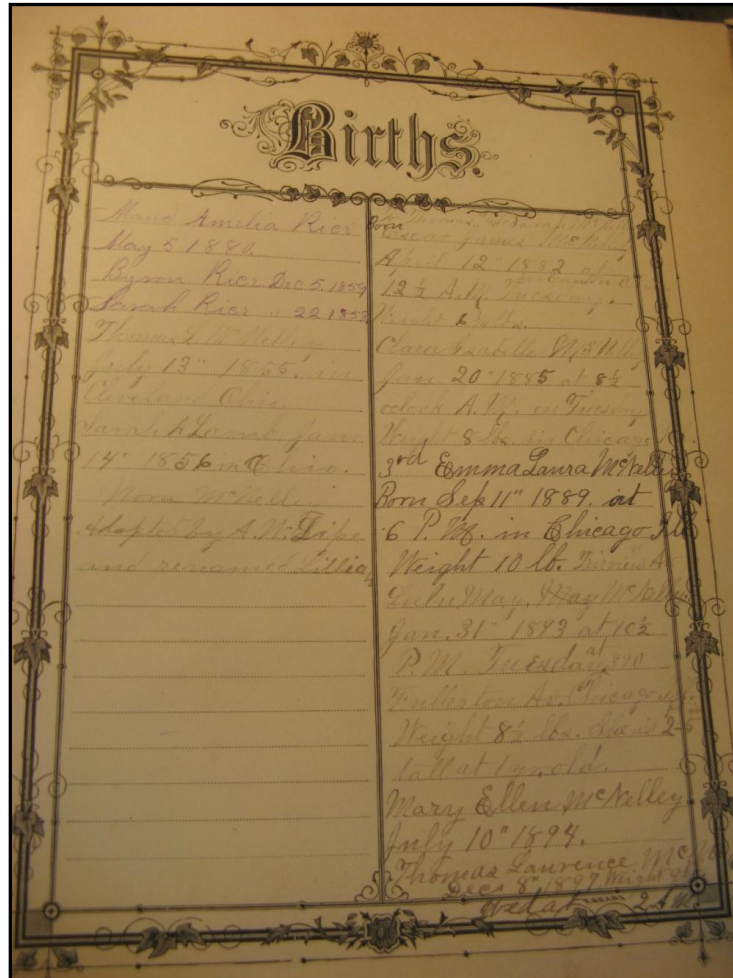 Births.
Maud Amelia Rier
May 5 1880
Byron Rier Dec 5, 1859
Sarah Rier " 22 1853
Thomas L McNelley
July 13" 1855. in
Cleveland Ohio
Sarah A Lamb, Jan.
14" 1856 in Ohio.
Nora McNelley
Adopted by A. W.
and renamed Lillian
Born Thomas Sarah
Oscar James McNelley
April 12" 1882 at
12 ½ A.M. Tuesday.
Weight lbs.
Clara Isabelle McNelley
Jan. 20" 1885 at 8½
oclock A.M. on Tuesday
Weight 8 lbs. in Chicago
3rd Emma Laura McNelley
Born Sep 11" 1889. at
6 P.M. in Chicago Ill
Weight 10 lb.
Lulu May. May McNelley
Jan. 31" 1893 at 10½
P.M. Tuesday, at
Fullerton Av. Chicago
Weight 8½ lbs. She is 2-5
tall at 1 yr. old.
Mary Ellen McNelley
July 10" 1894.
Thomas Laurence
Dec. 8" 1897 Weight